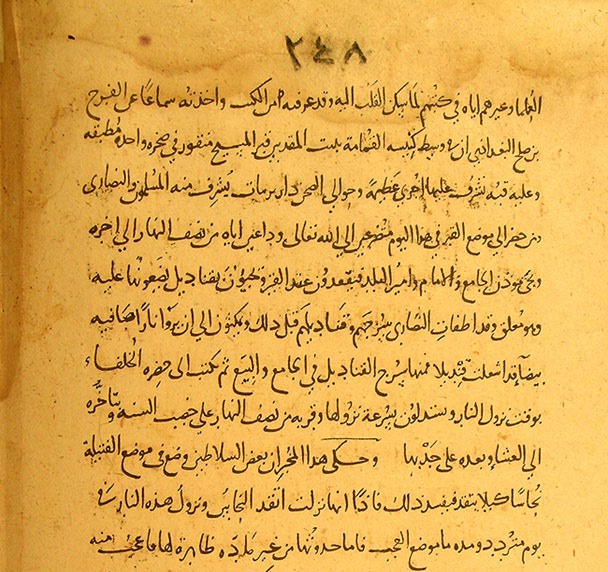 ٢٤٨
العلما وغيرهم اياه في كتبهم لما يسكن القلب اليه وقد عرفته من الكتب واخذته سماعًا عن الفرح
بن صلح البغدادي ان في وسط كنيسه القمامة ببيت المقدس قبر المسيح منقور في صخره واحده مطبقه
وعليه قبه يشرف عليها اخرى عظيمة وحوالي الصخر دار يشرف منه المسلمون والنصارى
ومن حضر الي موضع القبر في هذا اليوم الي الله تعالى وداعين اياه من نصف النهار الي اخره
ويجي موذن الجامع والامام وامير البلد فيقعدون عند القبر ويجيون بقناديل يضعونها عليه
وهو مغلق وقد اطفات النصارى سرجهم وقناديلهم قبل ذلك ويمكثون الي ان يروا نارًا صافيه
بيضا قد اشعلت قنديلا فمنها يسرج القناديل في الجامع والبيع ثم يكتب الي حضره الخلفاء
بوقت نزول النار ويستدلون بسرعة نزولها وقربه من نصف النهار على خصب السنه وبتاخره
الي العشا وبعده على جدبها وحكى هذا المخبر ان بعض السلاطين وضع في موضع الفتيلة
نحاسًا كيلا يتقد فيفسد ذلك فاذا انها نزلت اتقد النحاس ونزول هذه النار في
يوم متردد ومده ما موضع العجب فاما حدوثها من غير مادّه ظاهرة لها فاعجب منه